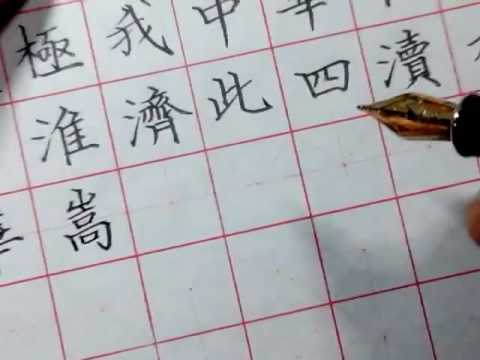 極我中華
淮濟此四瀆
嵩